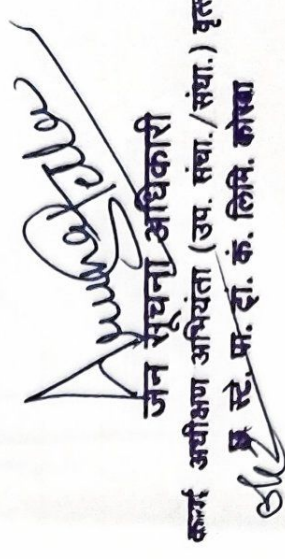 जन सूचना अधिकारी
अधीक्षण अभियंता (उप. संधा./संधा.) वृत्त
स्टे. पा. ट्रां. क. लिमि. कोरबा